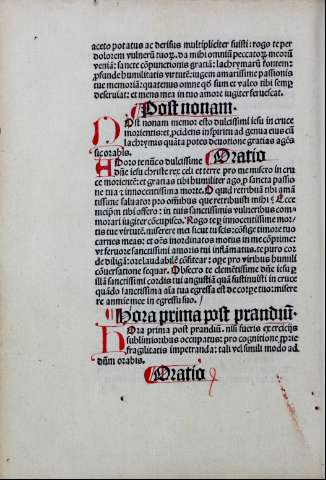 aceto potatus ac derisus multipliciter fuisti: rogo te per
dolorem vulnerū tuoꝝ. da mihi omniū peccatoꝝ meoꝝ
veniā: sancte cōpunctionis gratiā: lachrymarū fontem:
ꝓfunde humilitatis virtutē: iugem amarissime passionis
tue memoriā: quatenus omneqd sum et valeo tibi semp
deseruiat: et mens mea in tuo amore iugiter feruescat.
Post nonam.
Post nonam memor esto dulcissimi iesu in cruce
morientis: et ꝓcidens in spiritu ad genua eius cū
lachrymis quāta potes deuotione gratias agēs
sic orabis. Oratio
Adoro te nūc o dulcissime
dñe iesu christe rex celi et terre pro me misero in cru
ce moriētē: et gratias tibi humiliter ago, ꝓ sancta passio
ne tua et innocentissima morte. O quid retribuā tibi amā
tissime saluator pro omnibus que retribuisti mihi? Ecce
meipm tibi offero: in tuis sanctissimis vulneribus com
morari iugiter cōcupisco. Rogo te ꝑ innocentissime mor/
tis tue virtutē. miserere mei sicut tu scis: cōfige timore tuo
carnes meas: et oēs inordinatos motus in me cōprime:
vt feruore sanctissimi amoris tui inflāmatus, te puro cor
de diligā: ore laudabilē cōfitear: oꝑe pro viribus humili
cōuersatione sequar. Obsecro te clemētissime dñe iesu ꝑ
illā sanctissimi cordis tui angustiā quā sustinuisti in cruce
quādo sanctissima aīa tua egressa est de corpe tuo: misere
re anime mee in egressu suo.
Hora prima post prandiū.
Hora prima post prandiū. nisi fueris exercicijs
sublimioribus occupatus: pro cognitione ꝓprie
fragilitatis impetranda: tali vel simili modo ad
dūm orabis.
Oratio